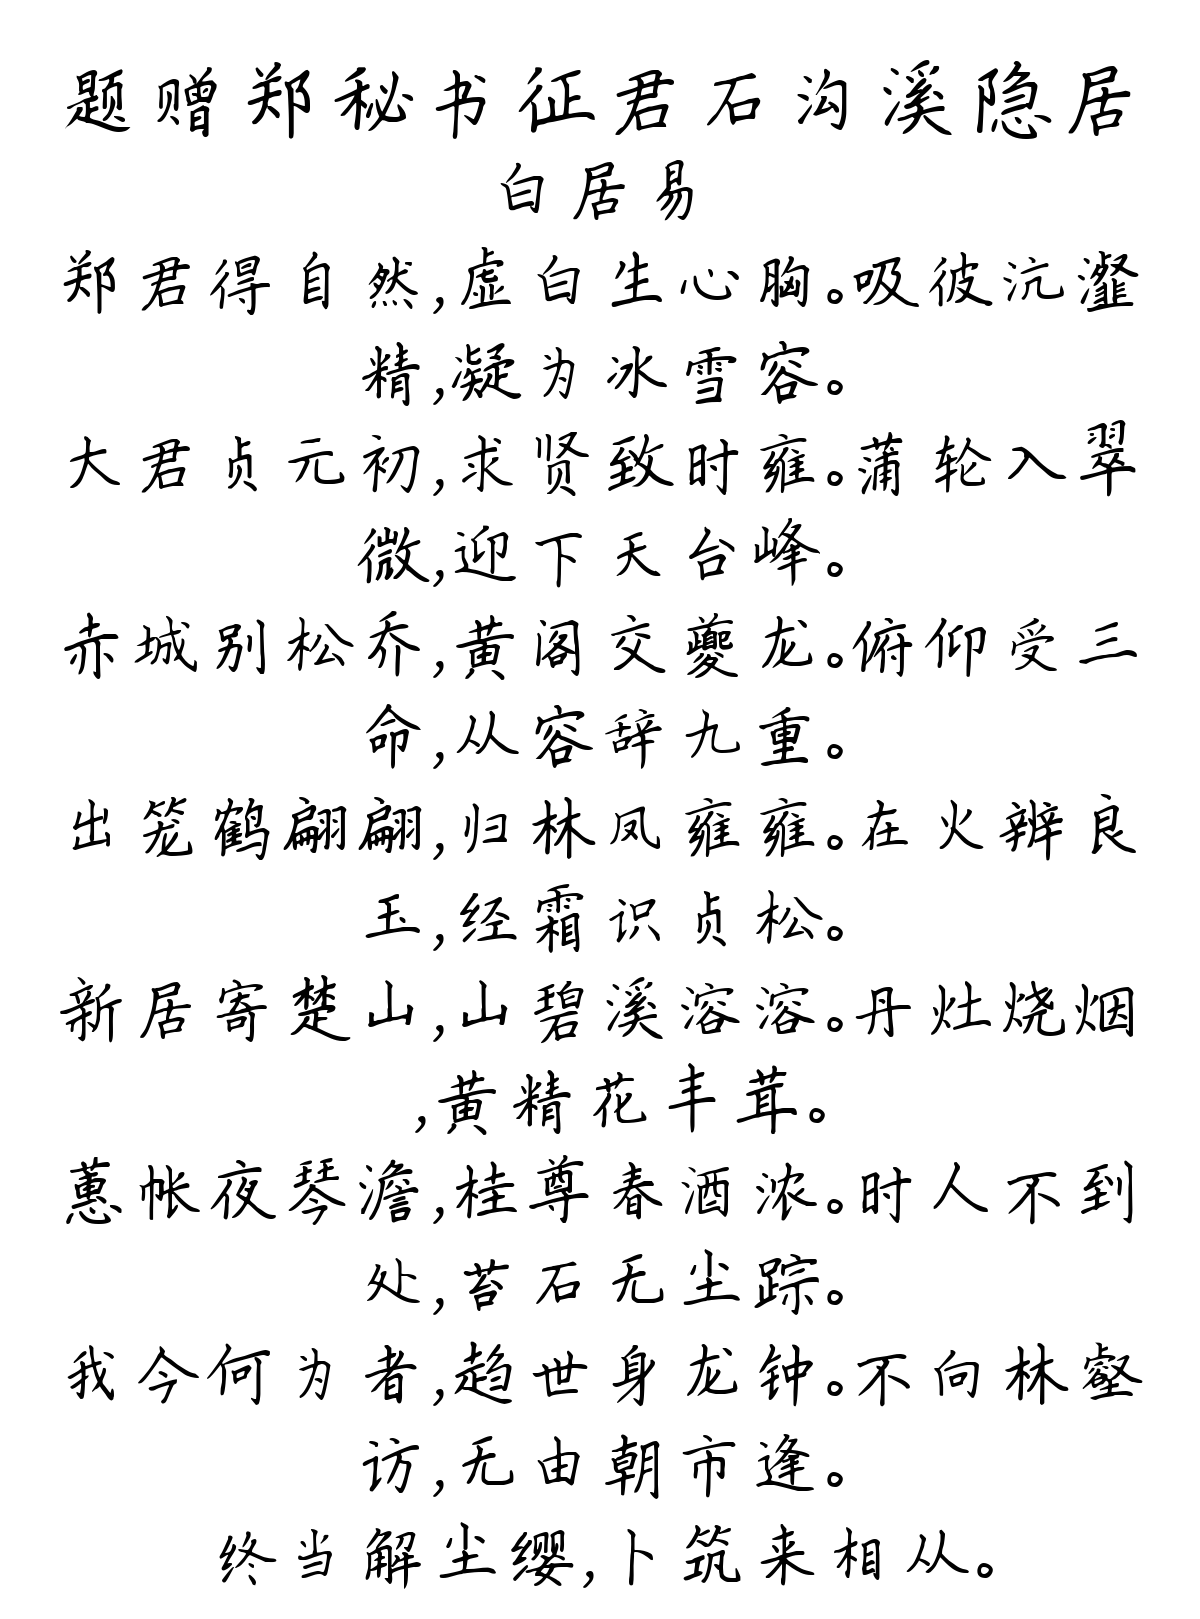 题赠郑秘书征君石沟溪隐居
白居易
郑君得自然,虚白生心胸。吸彼沆瀣
精,凝为冰雪容。
大君贞元初,求贤致时雍。蒲轮入翠
微,迎下天台峰。
赤城别松乔,黄阁交夔龙。俯仰受三
命,从容辞九重。
出笼鹤翩翩,归林凤雍雍。在火辨良
玉,经霜识贞松。
新居寄楚山,山碧溪溶溶。丹灶烧烟
,黄精花丰茸。
蕙帐夜琴澹,桂尊春酒浓。时人不到
处,苔石无尘踪。
我今何为者,趋世身龙钟。不向林壑
访,无由朝市逢。
终当解尘缨,卜筑来相从。